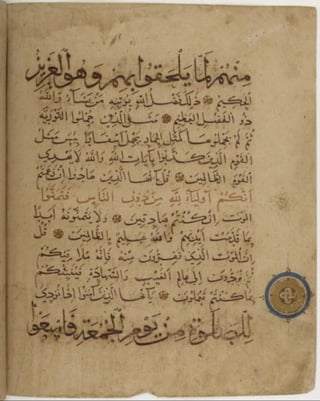 منهم لما يلحقوا بهم وهو العزيز
الحكيم ذلك فضل الله يؤتيه من يشاء والله
ذو الفضل العظيم مثل الذين حملوا التورية
ثم لم يحملوها كمثل الحمار يحمل اسفارا بئس مثل
القوم الذين كذبوا بآيات الله والله لا يهدي
القوم الظالمين قل يا أيها الذين هادوا إن زعمتم
أنكم أولياء لله من دون الناس فتمنوا
الموت إن كنتم صادقين ولا يتمنونه أبدا
بما قدمت أيديهم والله عليم بالظالمين قل
إن الموت الذي تفرون منه فإنه ملاقيكم
ثم تردون إلى عالم الغيب والشهادة فينبئكم
بما كنتم تعملون يا أيها الذين آمنوا إذا نودي
للصلوة من يوم الجمعة فاسعوا